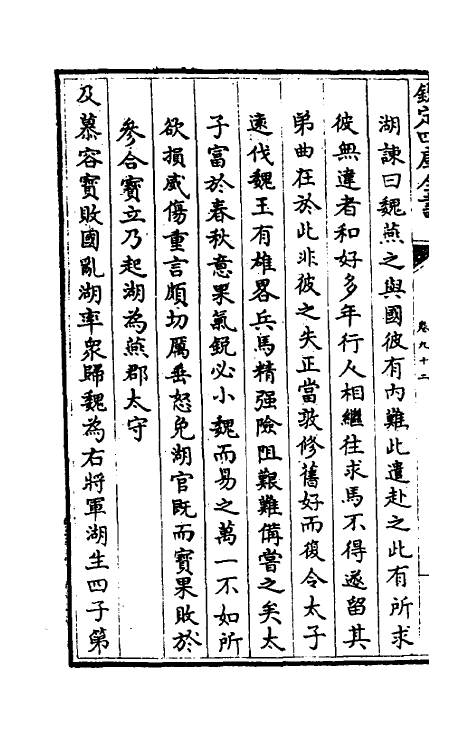 欽定四庫全書
卷九十二
湖諫曰魏燕之與國彼有内難此遣赴之此有所求
彼無違者和好多年行人相繼往求馬不得遂留其
弟曲在於此非彼之失正當敦修舊好而復令太子
逺伐魏王有雄畧兵馬精强險阻艱難備嘗之矣太
子富於春秋意果氣鋭必小魏而易之萬一不如所
欲損威傷重言頗切厲垂怒免湖官既而寳果敗於
參合寳立乃起湖為燕郡太守
及慕容寳敗國亂湖率衆歸魏為右將軍湖生四子第